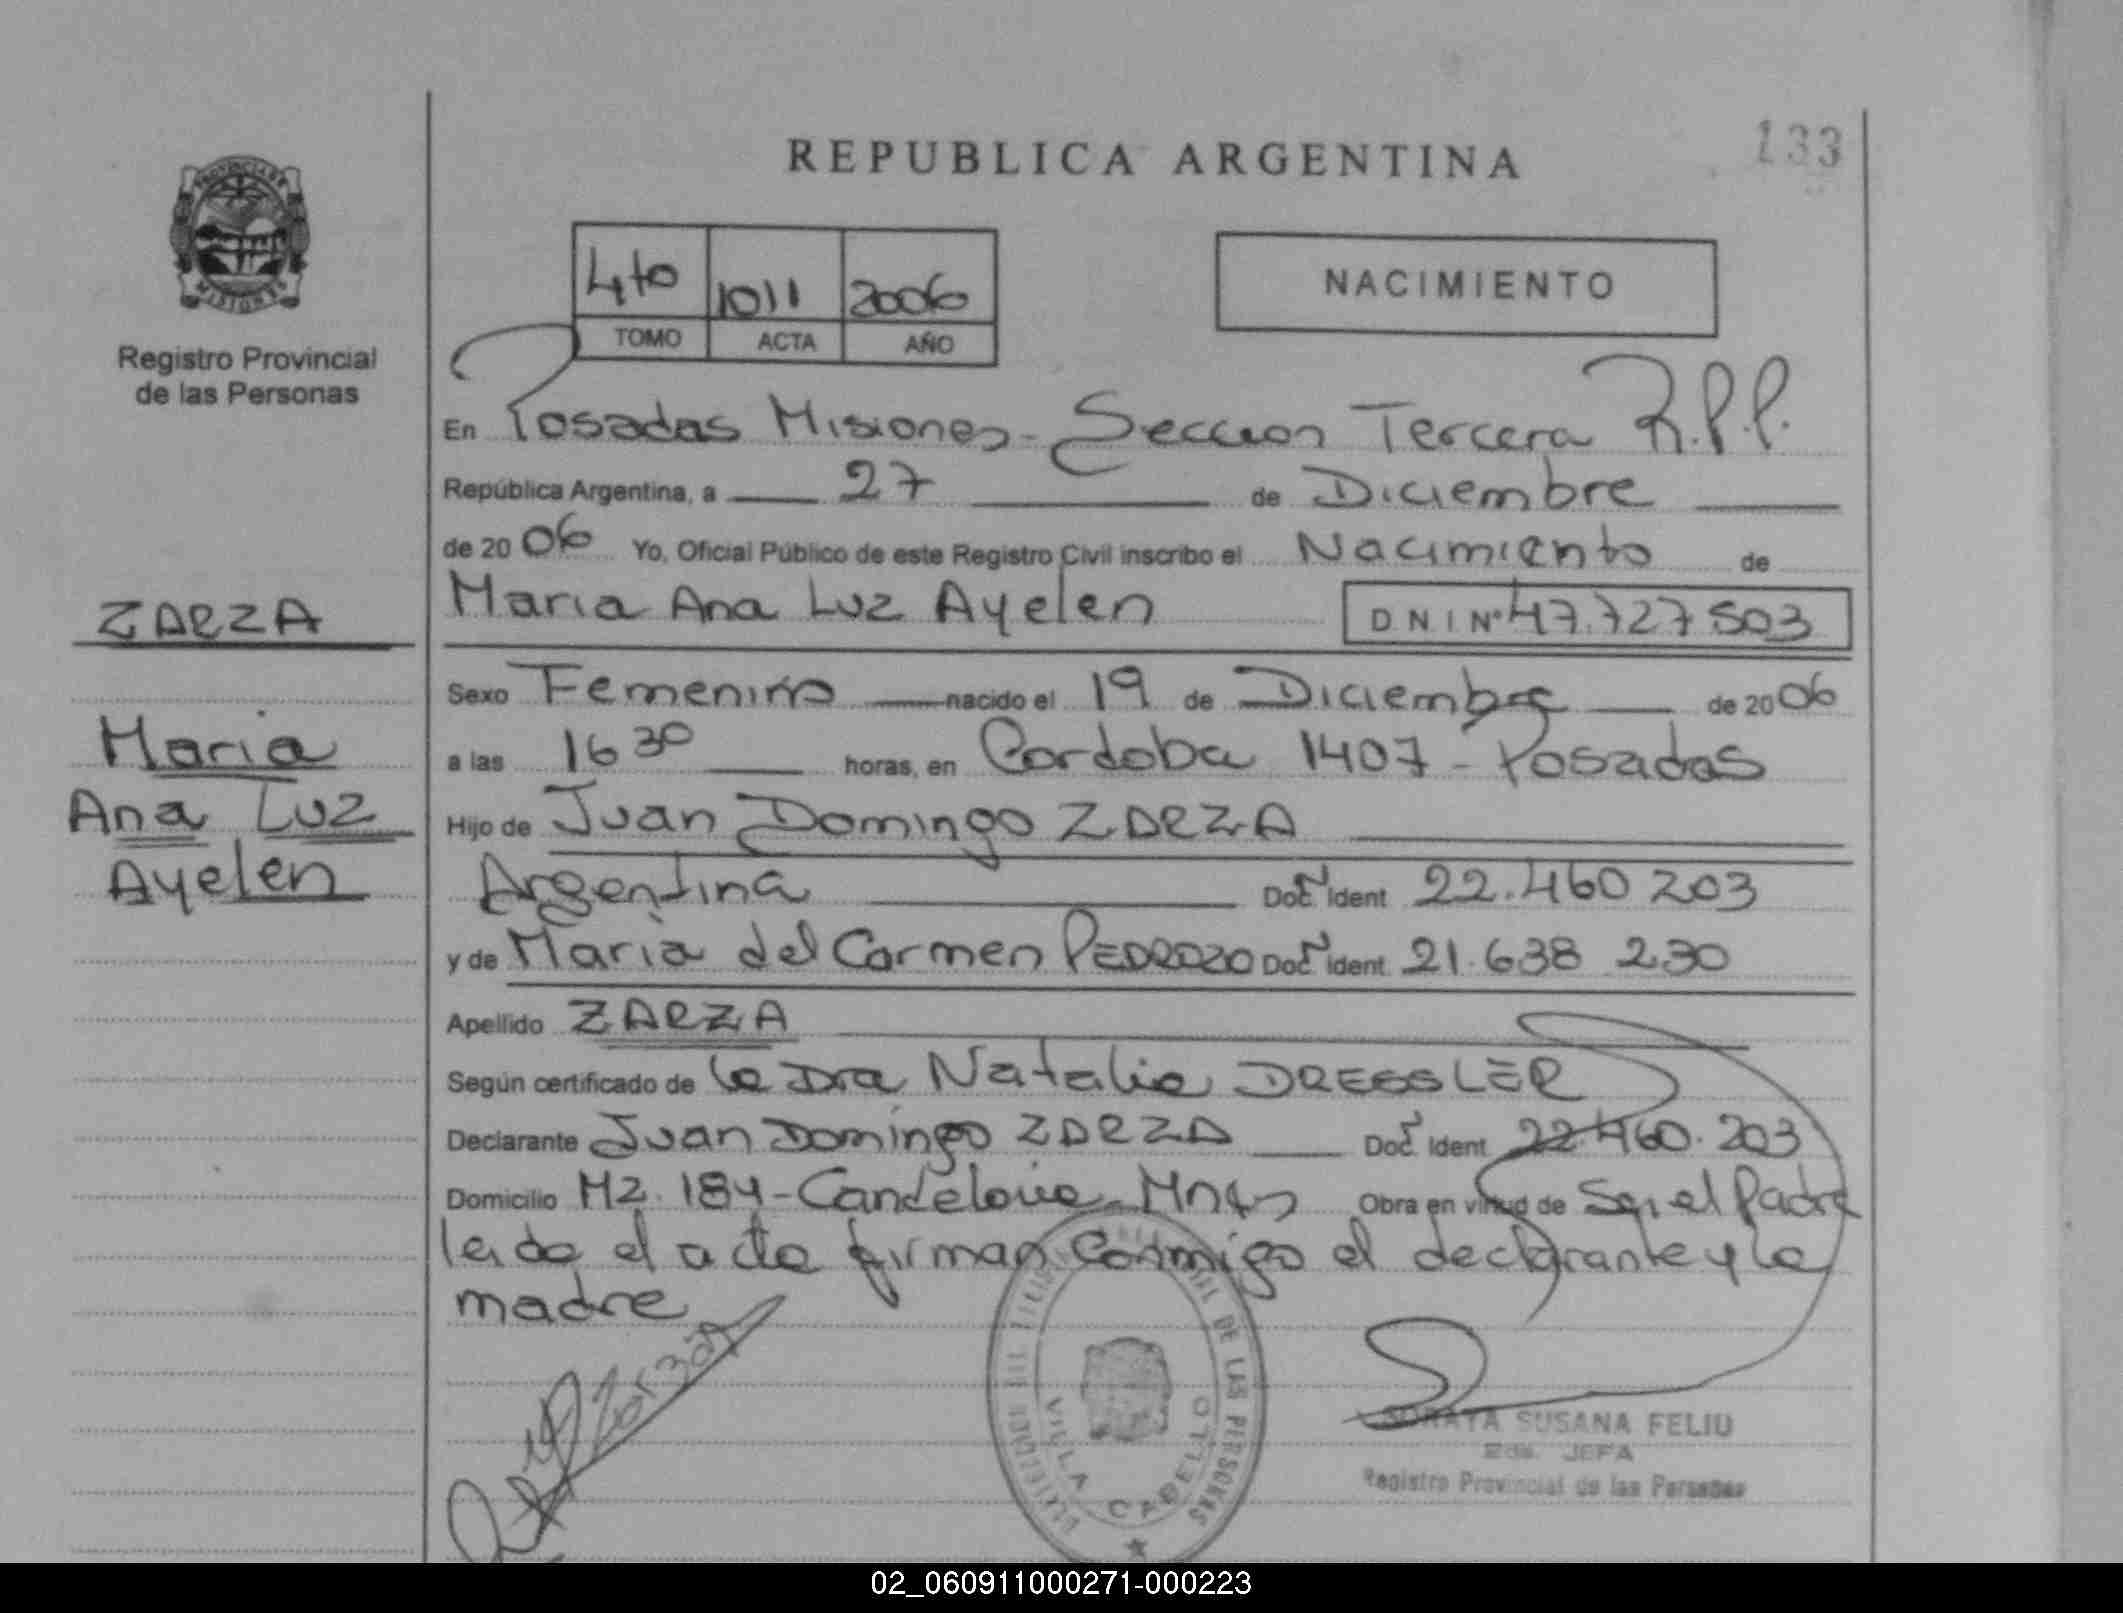 133
REPUBLICA ARGENTINA
PROVINCIA DE
MISIONES
Registro Provincial
de las Personas
4to 1011 2006
TOMO ACTA AÑO
NACIMIENTO
En Posadas Misiones - Seccion Tercera R.P.P.
República Argentina, a 27 de Diciembre
de 2006 Yo, Oficial Público de este Registro Civil inscribo el Nacimiento de
Maria Ana Luz Ayelen D N I Nº 47.727503
ZARZA
Maria
Ana Luz
Ayelen
Sexo Femenino nacido el 19 de Diciembre de 2006
a las 16 30 horas, en Cordoba 1407 - Posadas
Hijo de Juan Domingo ZARZA
Argentina Doc Ident 22.460 203
y de Maria del Carmen PEDROZO Doc Ident 21.638 230
Apellido ZARZA
Según certificado de la Dra Natalia DRESSLER
Declarante Juan Domingo ZARZA Doc. Ident 22.460.203
Domicilio Mz. 184 - Candelaria - Obra en virtud de Ser el Padre
leida el acta firman conmigo el declarante y la
madre
Zarza
DE LAS PERSONAS
VILLA CABELLO
SORAYA SUSANA FELIU
JEFA
Registro Provincial de las Personas
02_060911000271-000223